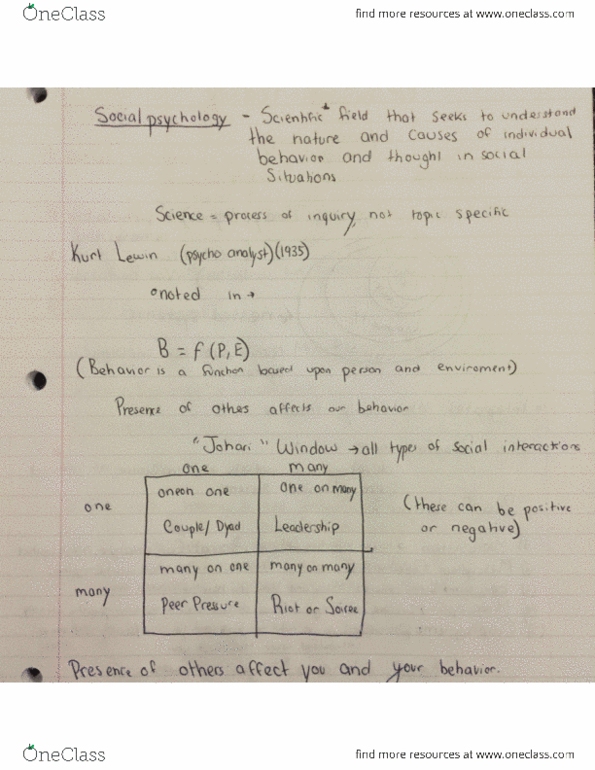 OneClass
find more resources at www.oneclass.com
Social psychology - Scientific field that seeks to understand
the nature and causes of individual
behavior and thought in social
Situations
Science = process of inquiry, not topic specific
Kurt Lewin (psycho analyst)(1935)
noted in →
B = f (P, E)
(Behavior is a function based upon person and enviroment)
Presence of others affects our behavior
"Johari" Window → all types of social interactions
one many
one
one on one
Couple/ Dyad
one on many
Leadership
(these can be positive
or negative)
many
many on one
Peer Pressure
many on many
Riot or Soiree
Presence of others affect you and your behavior.
OneClass
find more resources at www.oneclass.com